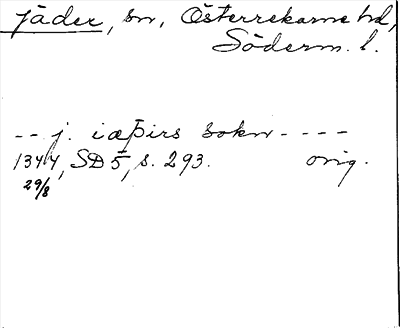 Jäder, sn, Österrekarne hd,
Söderm. l.
-- j. iæþirs sokn ----
1344, SD 5, s. 293. orig.
29/8